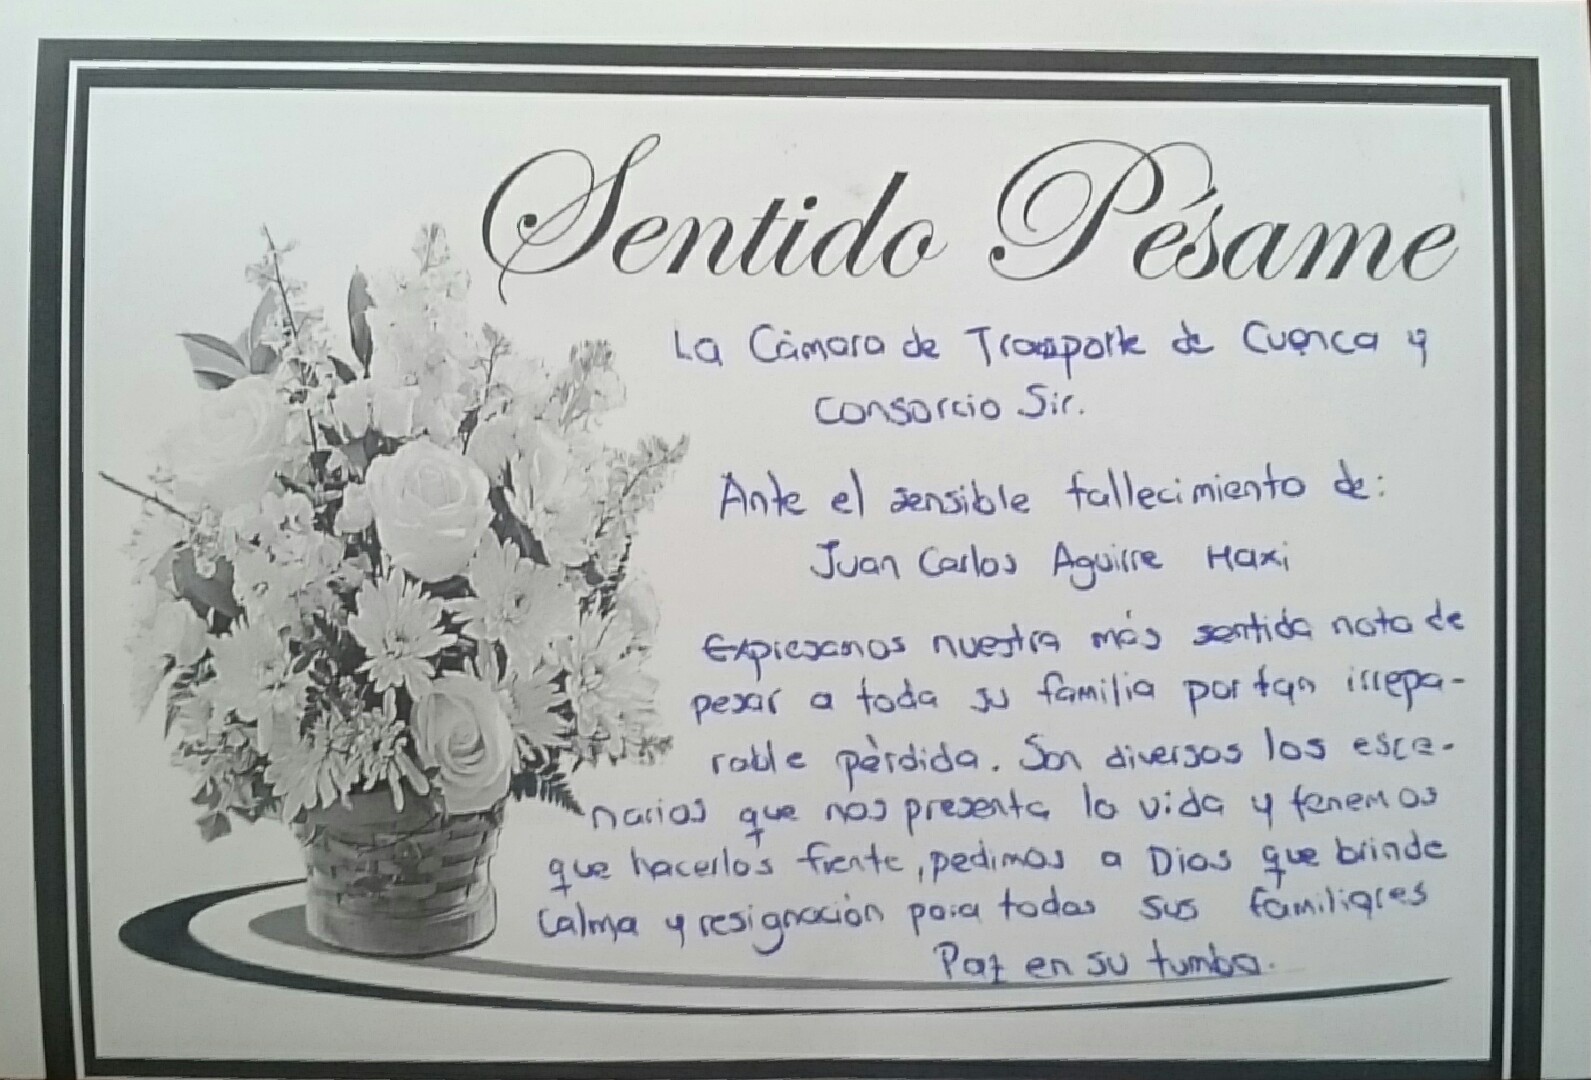 Sentido Pésame
La Cámara de Transporte de Cuenca y
Consorcio Sir.
Ante el sensible fallecimiento de:
Juan Carlos Aguirre Maxi
Expresamos nuestra más sentida nota de
pesar a toda su familia por tan irrepa-
rable pérdida. Son diversos los esce-
narios que nos presenta la vida y tenemos
que hacerlos frente, pedimos a Dios que brinde
calma y resignación para todos sus familiares
Paz en su tumba.